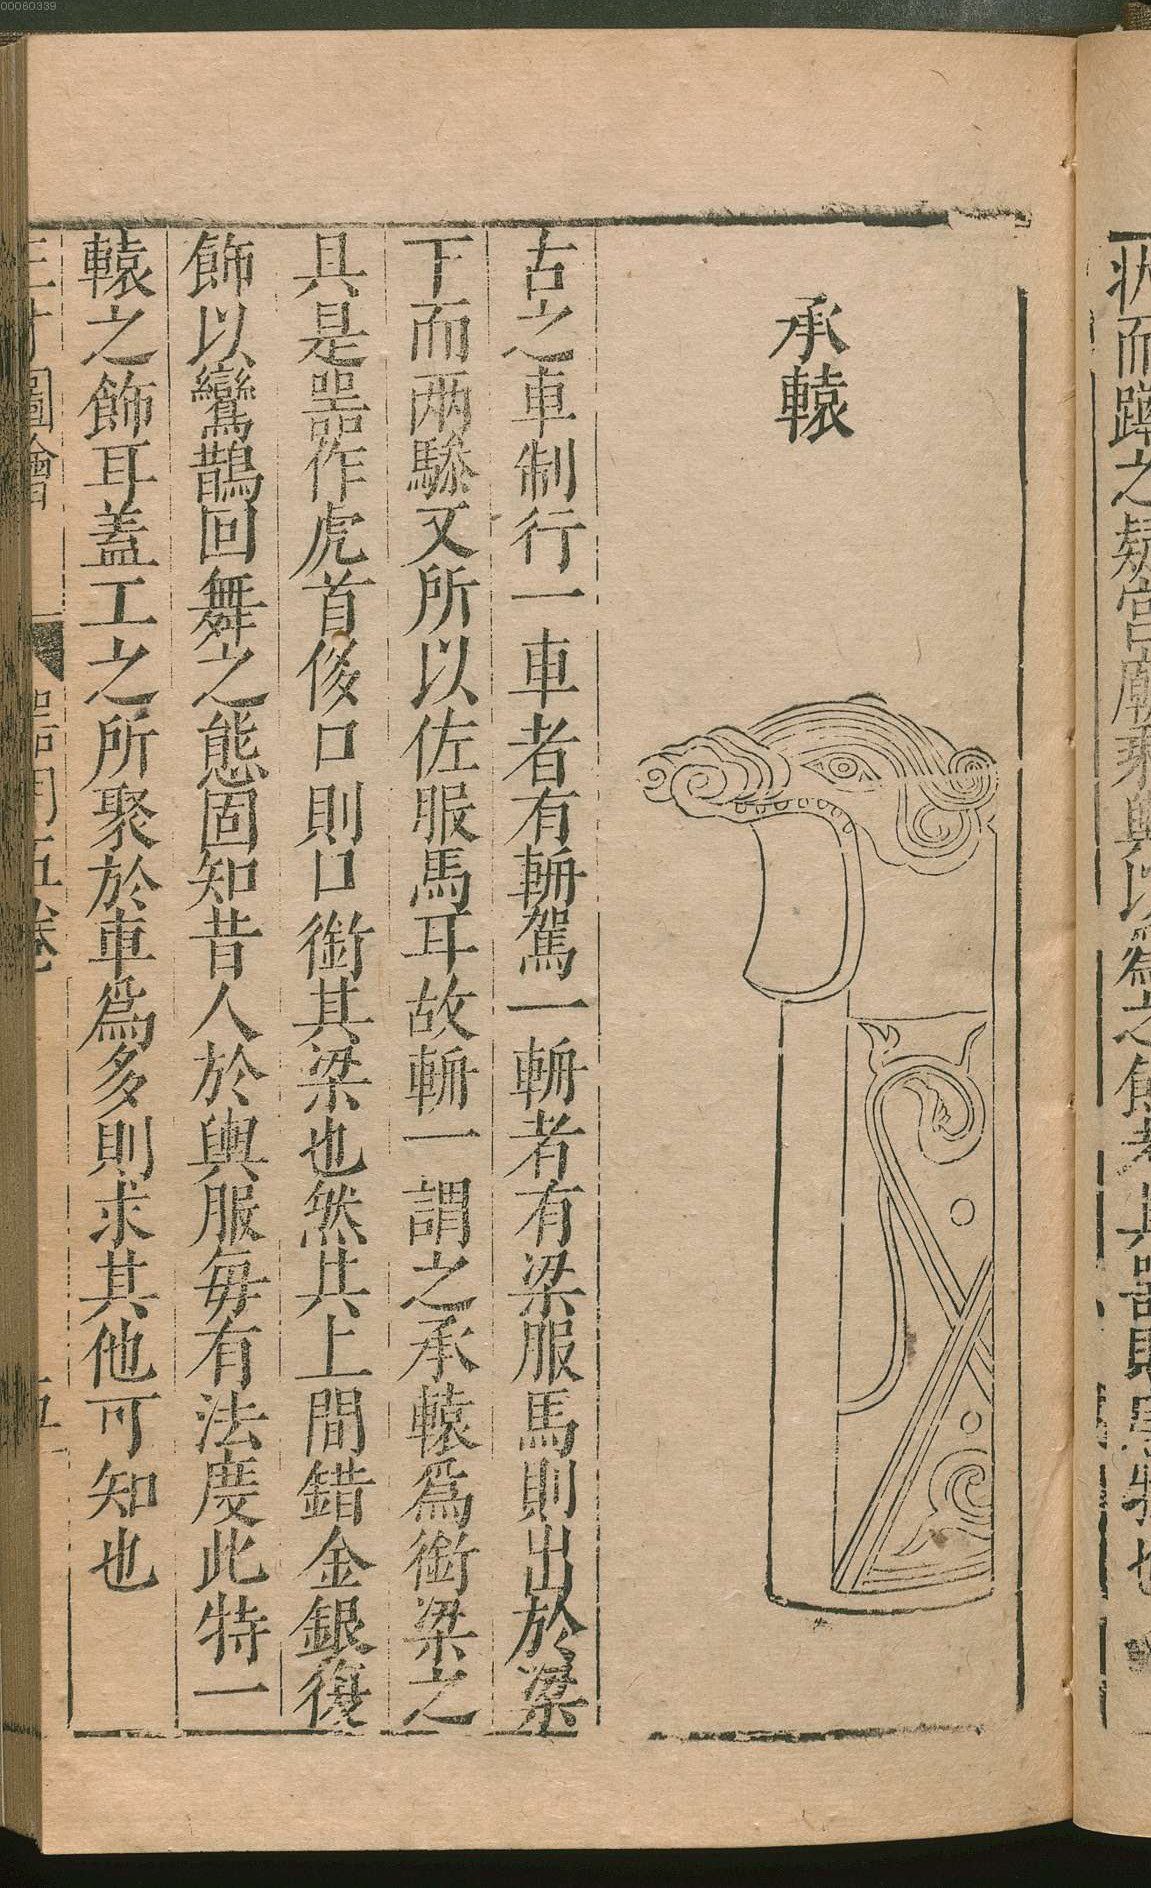 00060339
承轅
古之車制行一車者有輈駕一輈者有梁服馬則出於梁
下而兩驂又所以佐服馬耳故輈一謂之承轅為銜梁之
具是噐作虎首侈口則口銜其梁也然其上間錯金銀復
飾以鸞鵲回舞之態固知昔人於輿服毎有法度此特一
轅之飾耳蓋工之所聚於車爲多則求其他可知也
三才圖會 器用五卷